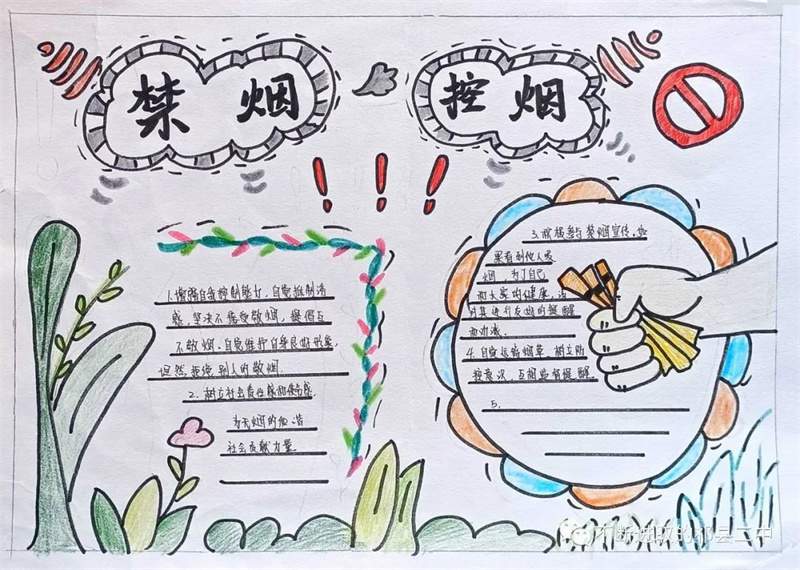 禁烟
控烟
1.增强自我控制能力,自觉抵制诱
惑,坚决不接受敬烟,提倡互
不敬烟.自觉维护自身良好形象,
坦然拒绝别人的敬烟.
2.树立社会责任感和使命感
为无烟的和谐
社会贡献力量.
3.积极参与禁烟宣传,如
果看到他人吸
烟,为了自己
和大家的健康,请
对其进行友善的提醒
和劝诫.
4.自觉远离烟草 树立防
控意识,互相监督提醒.
5.